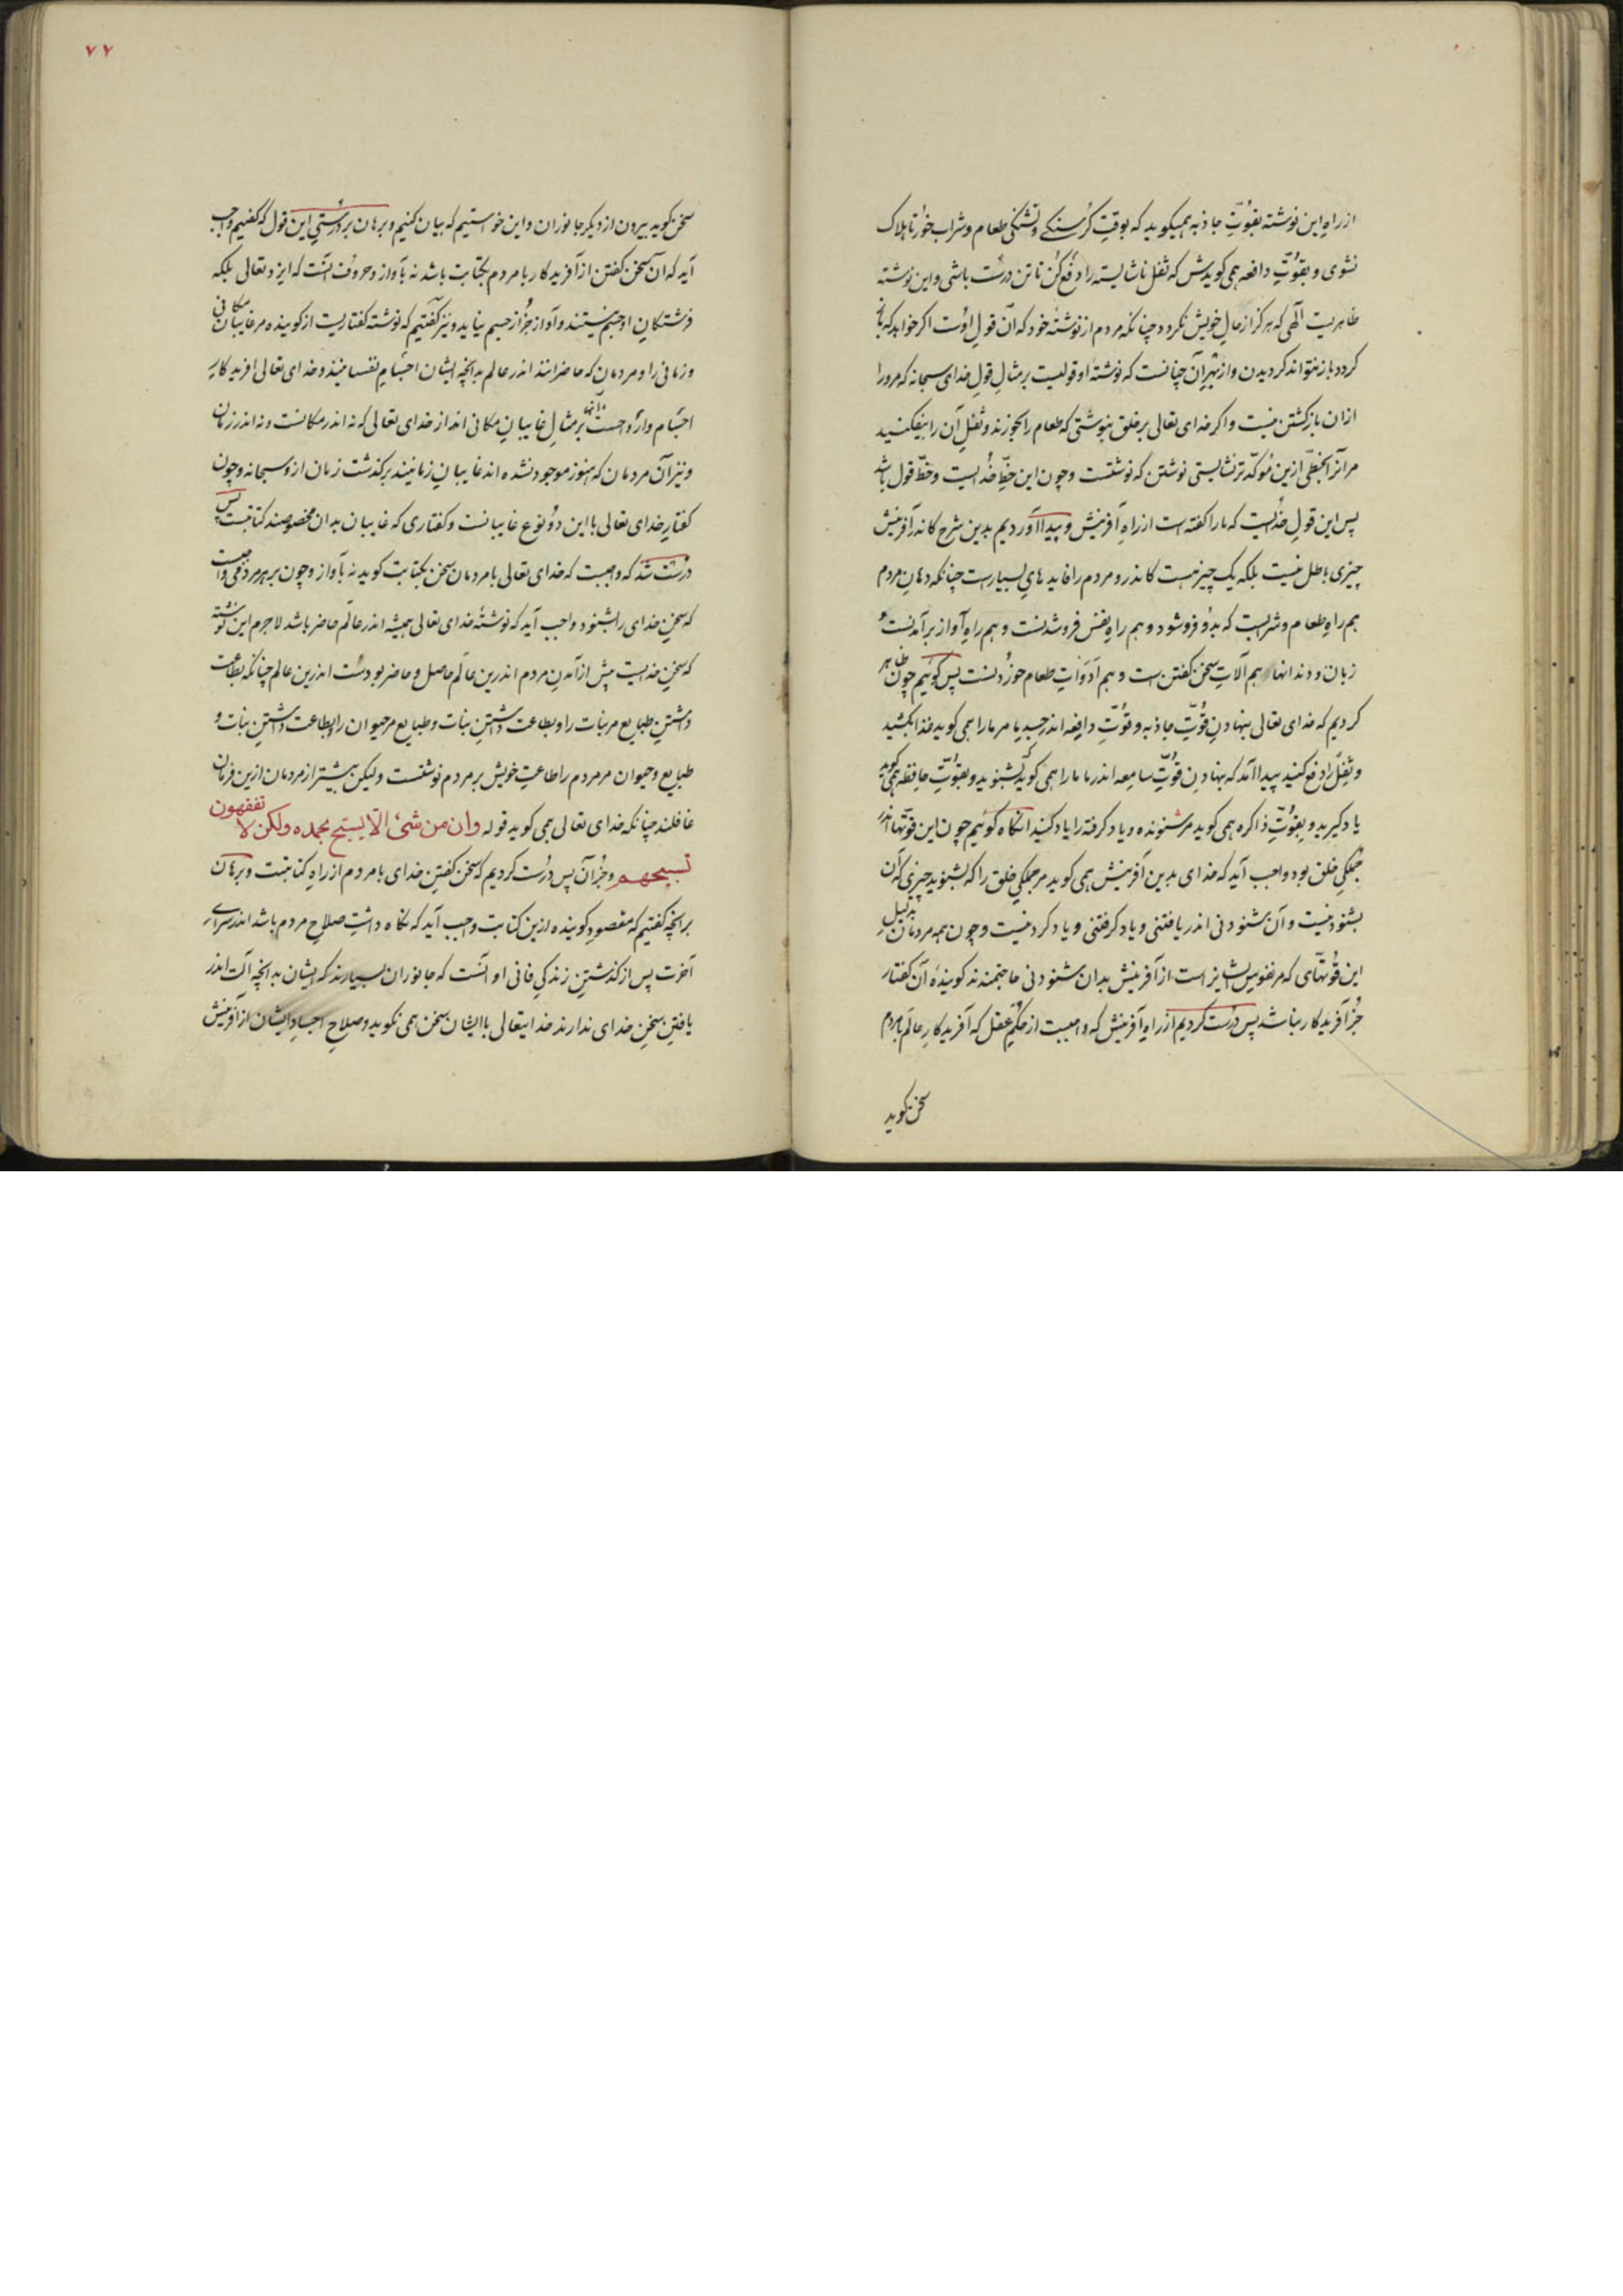 از راه این نوشته بقوّتِ جاذبه همیکوید که بوقتِ کرسنکے و تشنکی طعام و شراب خور تا هلاک
نشوی و بقوّتِ دافعه همی کویدش که ثفل ناشایسته را دفع کن تا تن درست باشی و این نوشته
الٓهی که هرکز از حالِ خویش نکردد چنانکه مردم از نوشتهٔ خود که آن قولِ اوست اکر خواهد که باز
کردد باز نتواند کردیدن و از بهرِ آن چنانست که نوشتهٔ او قولیست بر مثالِ قولِ خدای سبحانه که مرورا
ازان بازکشتن نیست و اکر خدای تعالی بر خلق بنوشتی که طعام را بخورند و ثفلِ آن را بیفکنید
مر آنرا بخطّی ازین مؤکّدتر نشایستی نوشتن که نوشتست و چون این خطِّ خدایست و خطّ قول باشد
پس این قولِ خدایست که مارا کفته است از راهِ آفرینش و پیدا آوردیم بدین شرح کاندر آفرینش
چیزی باطل نیست بلکه یک چیز هست کاندرو مردم را فایدهای بسیارست چنانکه دهانِ مردم
هم راهِ طعام و شرابست که بدو فروشود و هم راهِ نفس فروشدنست و هم راهِ آواز برآمدنست و
زبان و دندانها هم آلاتِ سخن کفتن است و هم ادواتِ طعام خوردنست پس کوئیم چون ظاهر
کردیم که خدای تعالی بنهادنِ قوّتِ جاذبه و قوّتِ دافعه اندر جسدِ ما مر مارا همی کوید غذا بکشید
و ثفل را دفع کنید پیدا آمد که بنهادنِ قوّتِ سامعه اندر ما مارا همی کوید بشنوید و بقوّتِ حافظه همی کوید
یاد کیرید و بقوّتِ ذاکره همی کوید مر شنوده و یاد کرفته را یاد کنید آنکاه کوئیم چون این قوّتها اندر
جملکیِ خلق بود واجب آید که خدای بدین آفرینش همی کوید مر جملکیِ خلق را که بشنوید چیزی که آن
بشنود نیست و آن شنودنی اندر یافتنی و یاد کرفتنی و یاد کرد نیست و چون همه مردمان بر سبیلِ
این قوّتهای که مر نفوسِ ایشانراست از آفرینش بدان شنودنی حاجتمندند کویندهٔ آن کفتار
جز آفریدکار نباشد پس درست کردیم از راهِ آفرینش که واجبست از حکمِ عقل که آفریدکارِ عالم با مردم
سخن کوید
۷۷
سخن کوید بیرون از دیکر جانوران و این خواستیم که بیان کنیم و برهان بر درستیِ این قول که کفتیم واجب
آید که آن سخن کفتن از آفریدکار با مردم بکتابت باشد نه بآواز و حروف آنست که ایزد تعالی بلکه
فرشتکانِ او جسم نیستند و آواز جز از جسم نیاید و نیز کفتیم که نوشته کفتاریست از کوینده مر غایبان مکانی
و زمانی را و مردمان که حاضرانند اندر عالم بدانچه ایشان اجسامِ نفسانیند و خدای تعالی آفریدکارِ
اجسام و ارواحست بر مثالِ غایبانِ مکانی اند از خدای تعالی که نه اندر مکانست و نه اندر زمان
و نیز آن مردمان که هنوز موجود نشده اند غایبانِ زمانیند بر کذشت زمان ازو سبحانه و چون
کفتارِ خدای تعالی با این دو نوع غایبانست و کفتاری که غایبان بدان مخصوصند کتابتست پس
درست شد که واجبست که خدای تعالی با مردمان سخن بکتابت کوید نه بآواز و چون بر هر مردمی واجبست
که سخنِ خدای را بشنود واجب آید که نوشتهٔ خدای تعالی همیشه اندر عالم حاضر باشد لاجرم این نوشته
که سخنِ خدایست پیش از آمدنِ مردم اندرین عالم حاصل و حاضر بودست اندرین عالم چنانکه بطاعت
داشتنِ طبایع مر نبات را و بطاعت داشتنِ نبات و طبایع مر حیوان را و بطاعت داشتنِ نبات و
طبایع و حیوان مر مردم را طاعتِ خویش بر مردم نوشتست و لیکن بیشتر از مردمان ازین فرمان
غافلند چنانکه خدای تعالی همی کوید قوله وان من شیٔ الّا یسبّح بحمده ولکن لا تفقهون
تسبیحهم و جز آن پس درست کردیم که سخن کفتنِ خدای با مردم از راهِ کتابتست و برهان
بر آنچه کفتیم که مقصودِ کوینده ازین کتابت واجب آید که نکاه داشتِ صلاحِ مردم باشد اندر سرای
آخرت پس از کذشتنِ زندکیِ فانی او آنست که جانوران بسیارند که ایشان بدانچه آلتِ اندر
یافتنِ سخنِ خدای ندارند خدایتعالی با ایشان سخن همی نکوید و صلاحِ اجسادِ ایشان از آفرینش